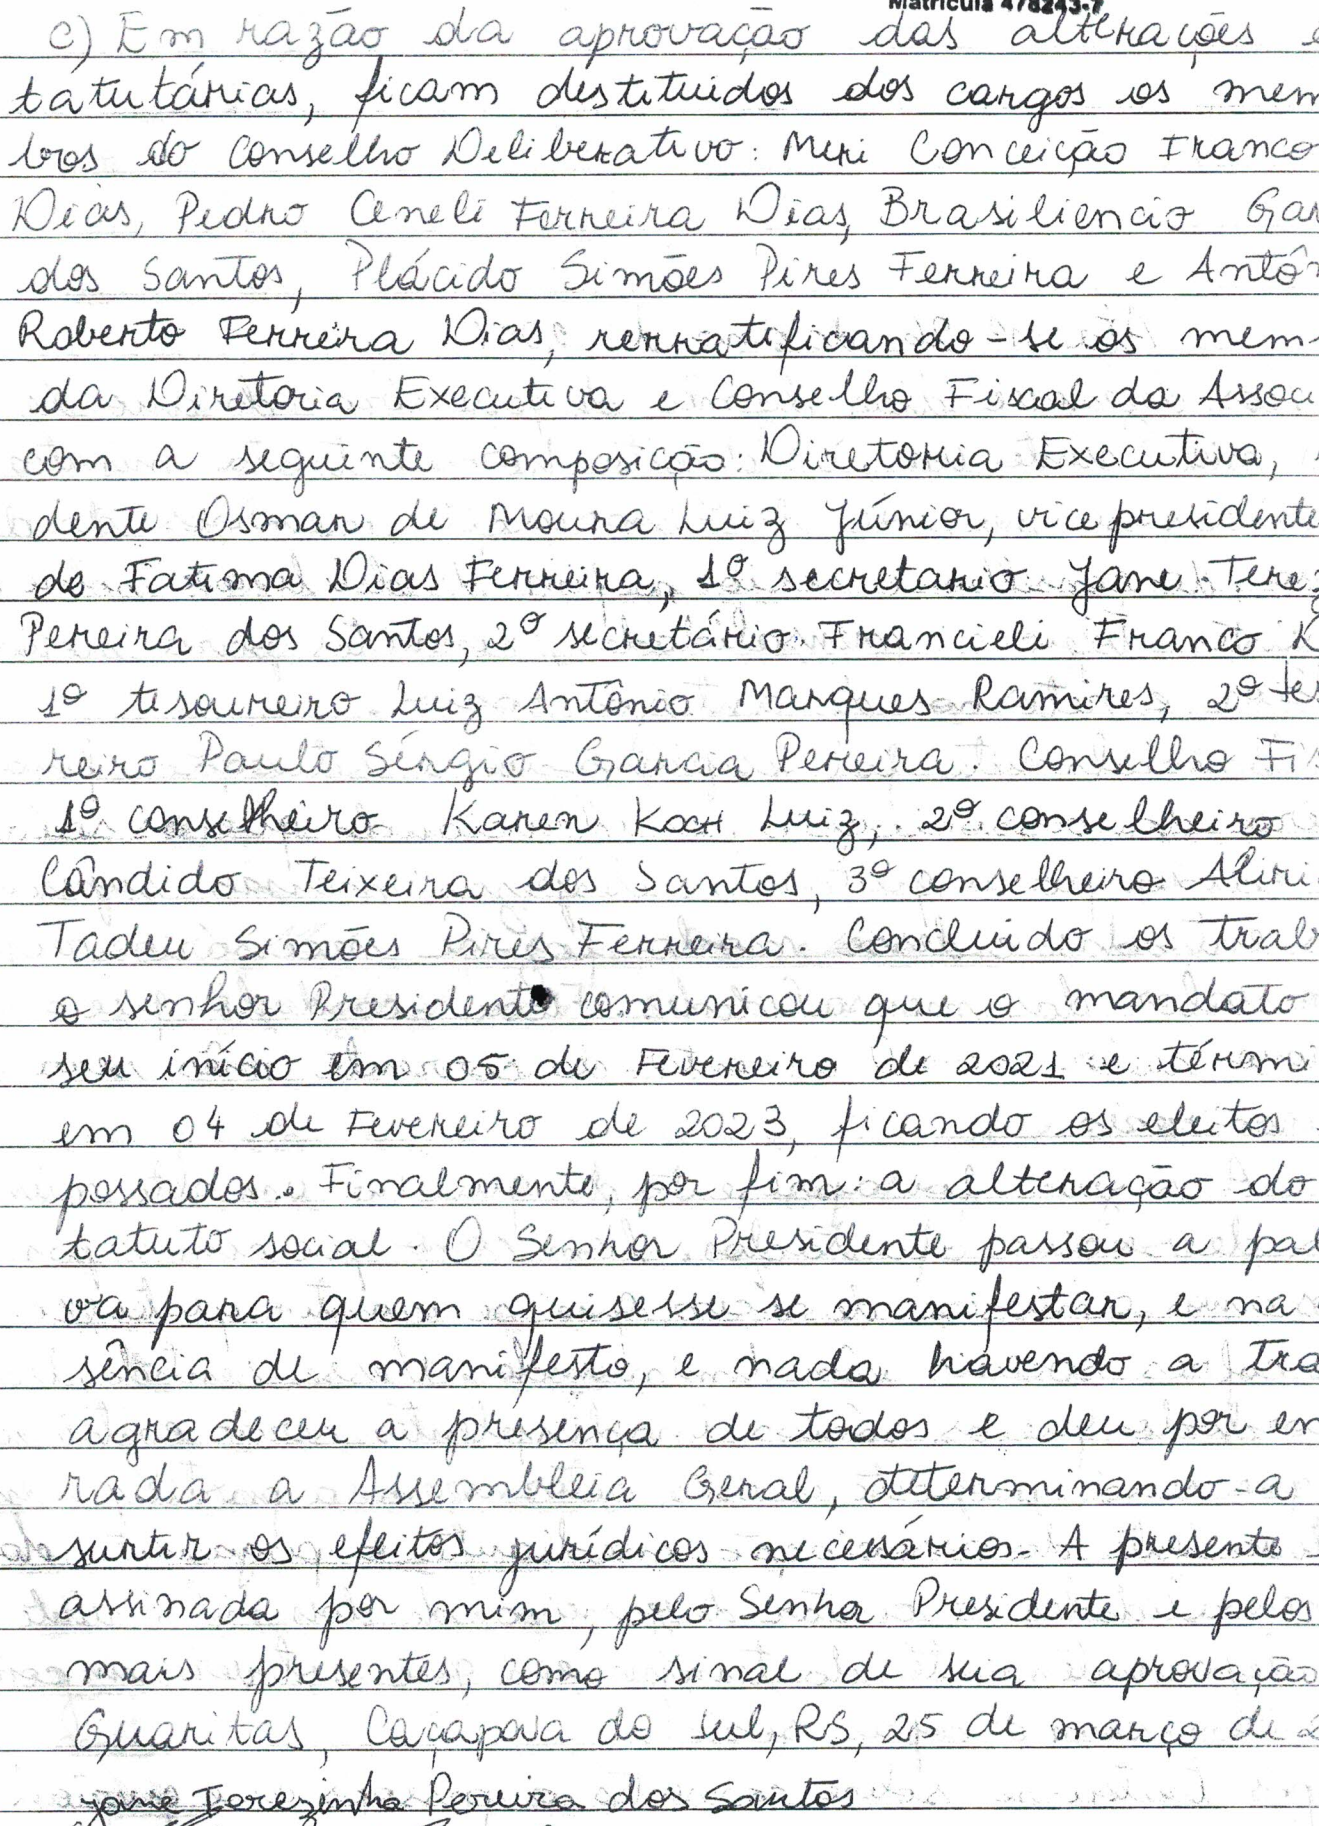 Matrícula 478243-7
c) Em razão da aprovação das alterações e
tatutárias, ficam destituidos dos cargos os mem
bros do Conselho Deliberativo: Meri Conceição Franco
Dias, Pedro Ceneli Ferreira Dias, Brasiliencio Gar
dos Santos, Plácido Simões Pires Ferreira e Antôn
Roberto Ferreira Dias, rerratificando-se os mem
da Diretoria Executiva e Conselho Fiscal da Associ
com a seguinte composição: Diretoria Executiva,
dente Osmar de Moura Luiz Júnior, vice presidente
de Fatima Dias Ferreira, 1º secretario Jane Terez
Pereira dos Santos, 2º secretário Francieli Franco D
1º tesoureiro Luiz Antônio Marques Ramires, 2º tes
reiro Paulo Sérgio Garcia Pereira. Conselho Fis
1º conselheiro Karen Koch Luiz, 2º conselheiro
Cândido Teixeira dos Santos, 3º conselheiro Aliri
Tadeu Simões Pires Ferreira. Concluido os trab
o senhor Presidente comunicou que o mandato
seu início em 05 de Fevereiro de 2021 e térmi
em 04 de Fevereiro de 2023, ficando os eleitos
possados. Finalmente, por fim: a alteração do
tatuto social. O Senhor Presidente passou a pal
va para quem quisesse se manifestar, e na
sência de manifesto, e nada havendo a tra
agradeceu a presença de todos e deu por en
rada a Assembleia Geral, determinando-a
surtir os efeitos jurídicos necessários. A presente
assinada por mim, pelo Senhor Presidente e pelos
mais presentes, como sinal de sua aprovação
Guaritas, Caçapava do Sul, RS, 25 de março de 2
Jane Terezinha Pereira dos Santos